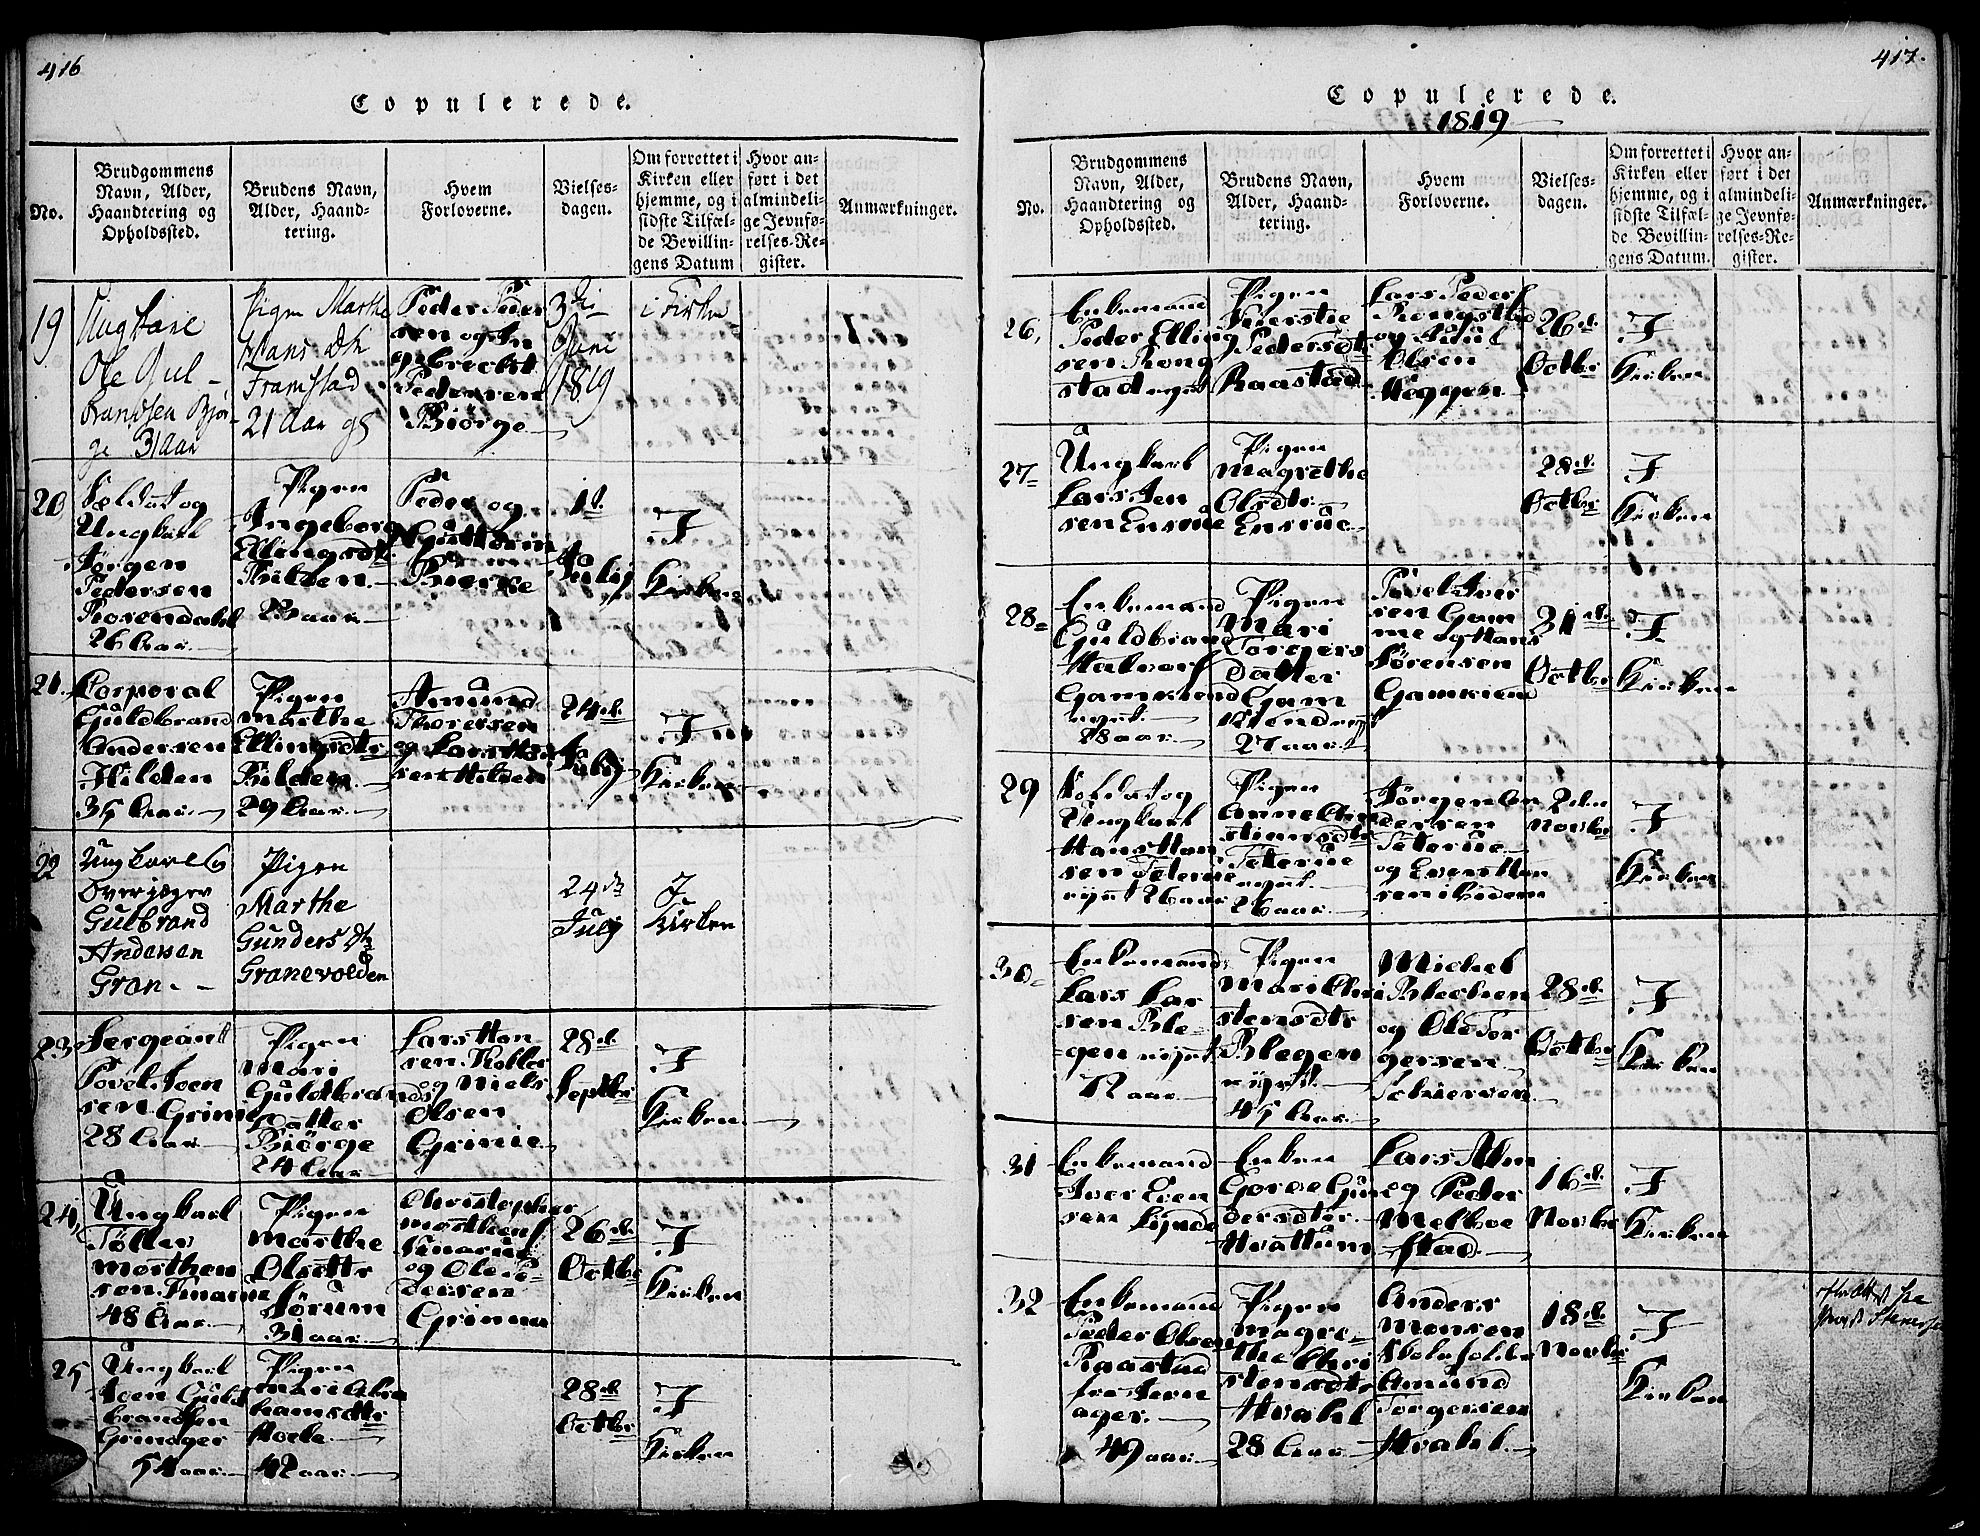 416
Copulerede.
No.
Brudgommens
Navn, Alder,
Haandtering og
Opholdssted.
Brudens Navn,
Alder, Haand-
tering.
Hvem
Forloverne.
Vielses-
dagen.
Om forrettet i
Kirken eller
hjemme, og i
sidste Tilfæl-
de Bevillin-
gens Datum
Hvor an-
ført i det
almindeli-
ge Jevnfø-
relses-Re-
gister.
Anmærkninger.
19
Ungkarl
Ole Gul-
brandsen Bjør-
ge 31 aar
Pigen Marthe
Hans Dtr
Framstad
21 Aar
Peder Peder
sen og In
gebrecht
Pedersen
Biørge
3die
Juni
1819
i Kirken
20
Soldat og
Ungkarl
Jørgen
Pedersen
Rosendahl
26 Aar
Pigen
Ingeborg
Ellingsdtr
Hilden
23 aar
Peder og
Guttorm
Bierke
1ste
Julij
I
Kirken
21
Corporal
Guldbrand
Andersen
Hilden
35 Aar
Pigen
Marthe
Ellingsdtr
Hilden
29 Aar
Amund
Thoresen
og Lars Han
sen Hilden
24de
Julij
I
Kirken
22
Ungkarl og
Overjæger
Gulbrand
Andersen
Gran
Pigen
Marthe
Gunders Dtr
Granevolden
24de
July
I
Kirken
23
Sergeant
Povel Joen
sen Grinie
28 Aar
Pigen
Mari
Guldbrands
Datter
Biørge
24 Aar
Lars Han
sen
og Niels
Olsen
Grinie
28de
Septbr
I
Kirken
24
Ungkarl
Tølles
Morthen
sen
48 Aar
Pigen
Marthe
Olsdtr
Sørum
31 aar
Christopher
Morthens
og Ole Pe
dersen
Grinna
26de
Octbr
I
Kirken
25
Ungkarl
Joen Guld
brandsen
Grinager
54 aar
Pigen
Mari Abra
hamsdtr
Hole
42 aar
28de
Octbr
I
Kirken
417.
Copulerede.
1819
No.
Brudgommens
Navn, Alder,
Haandtering og
Opholdssted.
Brudens Navn,
Alder, Haand-
tering.
Hvem
Forloverne.
Vielses-
dagen.
Om forrettet i
Kirken eller
hjemme, og i
sidste Tilfæl-
de Bevillin-
gens Datum.
Hvor an-
ført i det
almindeli-
ge Jevnfø-
relses-Re-
gister.
Anmærkninger.
26,
Enkemand
Peder Elling
sen Rong
stad
Pigen
Kierstie
Pedersdtr
Raastad
Lars Peders
Rongstad
og Povel
Olsen
Heggen
26de
Octbr
I
Kirken
27
Ungkarl
Lars Jen
sen Ensrue
Pigen
Magrethe
Olsdtr
Ensrue
28de
Octbr
I
Kirken
28
Enkemand
Guldbrand
Halvors
Gamkiend
28 aar
Pigen
Mari
Torgers
Datter
Gam
kiend
27 aar
Povel Iver
sen Gam
me og Hans
Sørensen
Gamkiend
31de
Octbr
I
Kirken
29
Soldat og
Ungkarl
Hans Han
sen Teterue
26 aar
Pigen
Anne Chri
stiansdtr
Teterue
26 aar
Jørgen An
dersen
Teterue
og Evens Han
sen ibidem
2den
Novbr
I
Kirken
30
Enkemand
Lars Lar
sen Ble
gen
72 aar
Pigen
Mari Chri
stensdtr
Blegen
45 Aar
Michel
Blechen
og Ole Tor
gersen
28de
Octbr
I
Kirken
31
Enkemand
Iver Even
sen Lynde
Enken
Goroe Gun
dersdter
Hvattum
Lars Alm
og Peder
Melboe
stad
16de
Novbr
I
Kirken
32
Enkemand
Peder Olsen
Raastad
fra Jevn
ager
49 aar
Pigen
Magre-
the Chri
stensdtr
Hvahl
28 Aar
Anders
Monsen
Amund
Torgersen
Hvahl
18de
Novbr
I
Kirken
Attest fra